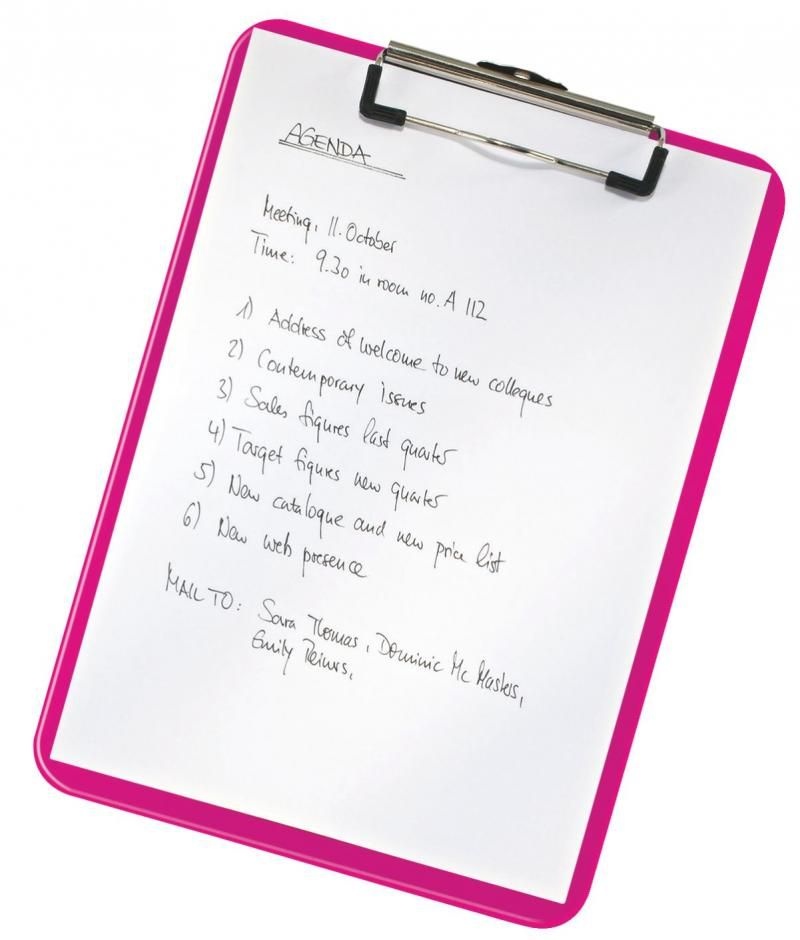 AGENDA
Meeting, 11. October
Time: 9.30 in room no. A 112
1) Address of welcome to new colleques
2) Contemporary issues
3) Sales figures last quarter
4) Target figures new quarter
5) New catalogue and new price list
6) New web presence
MAIL TO: Sara Thomas, Dominic Mc Masters,
Emily Reiners,